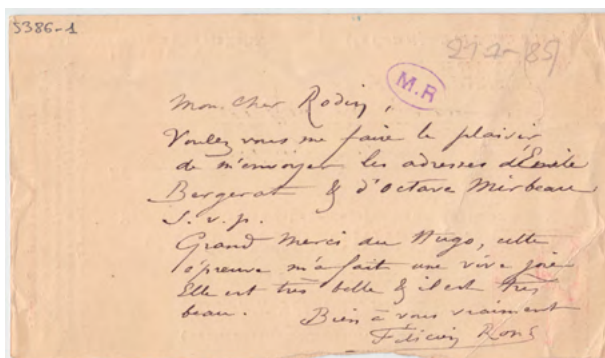 5386-1
85
M.R
Mon Cher Rodin,
Voulez vous me faire le plaisir
de m'envoyer les adresses d'Emile
Bergerat & d'Octave Mirbeau
S.v.p.
Grand merci du Hugo, cette
épreuve m'a fait une vive joie
Elle est très belle & il est très
beau. Bien à vous vraiment
Félicien Rops